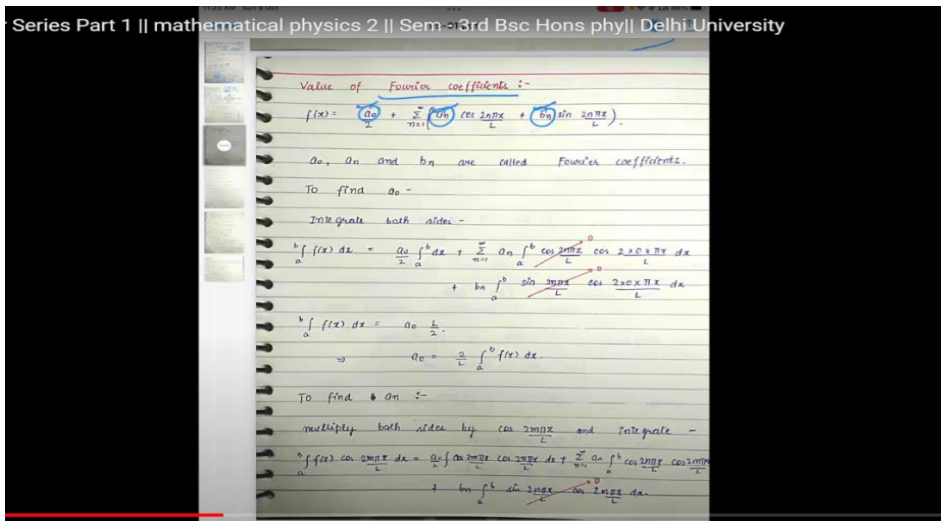 Series Part 1 || mathematical physics 2 || Sem - 3rd Bsc Hons phy|| Delhi University
Value of Fourier coefficients :-
f(x) = a₀/2 + Σ_{n=1}^{∞} (aₙ cos 2nπx/L + bₙ sin 2nπx/L).
a₀, aₙ and bₙ are called Fourier coefficients.
To find a₀ -
Integrate both sides -
ₐ∫ᵇ f(x) dx = a₀/2 ₐ∫ᵇ dx + Σ_{n=1}^{∞} aₙ ₐ∫ᵇ cos 2nπx/L cos 2×0×πx/L dx
+ bₙ ₐ∫ᵇ sin 2nπx/L cos 2×0×πx/L dx
ₐ∫ᵇ f(x) dx = a₀ L/2.
⇒ a₀ = 2/L ₐ∫ᵇ f(x) dx.
To find aₙ :-
multiply both sides by cos 2mπx/L and integrate -
ₐ∫ᵇ f(x) cos 2mπx/L dx = a₀/2 ∫ cos 2mπx/L cos 2nπx/L dx + Σ_{n=1}^{∞} aₙ ₐ∫ᵇ cos 2nπx/L cos 2mπx
+ bₙ ₐ∫ᵇ sin 2nπx/L cos 2nπx/L dx.